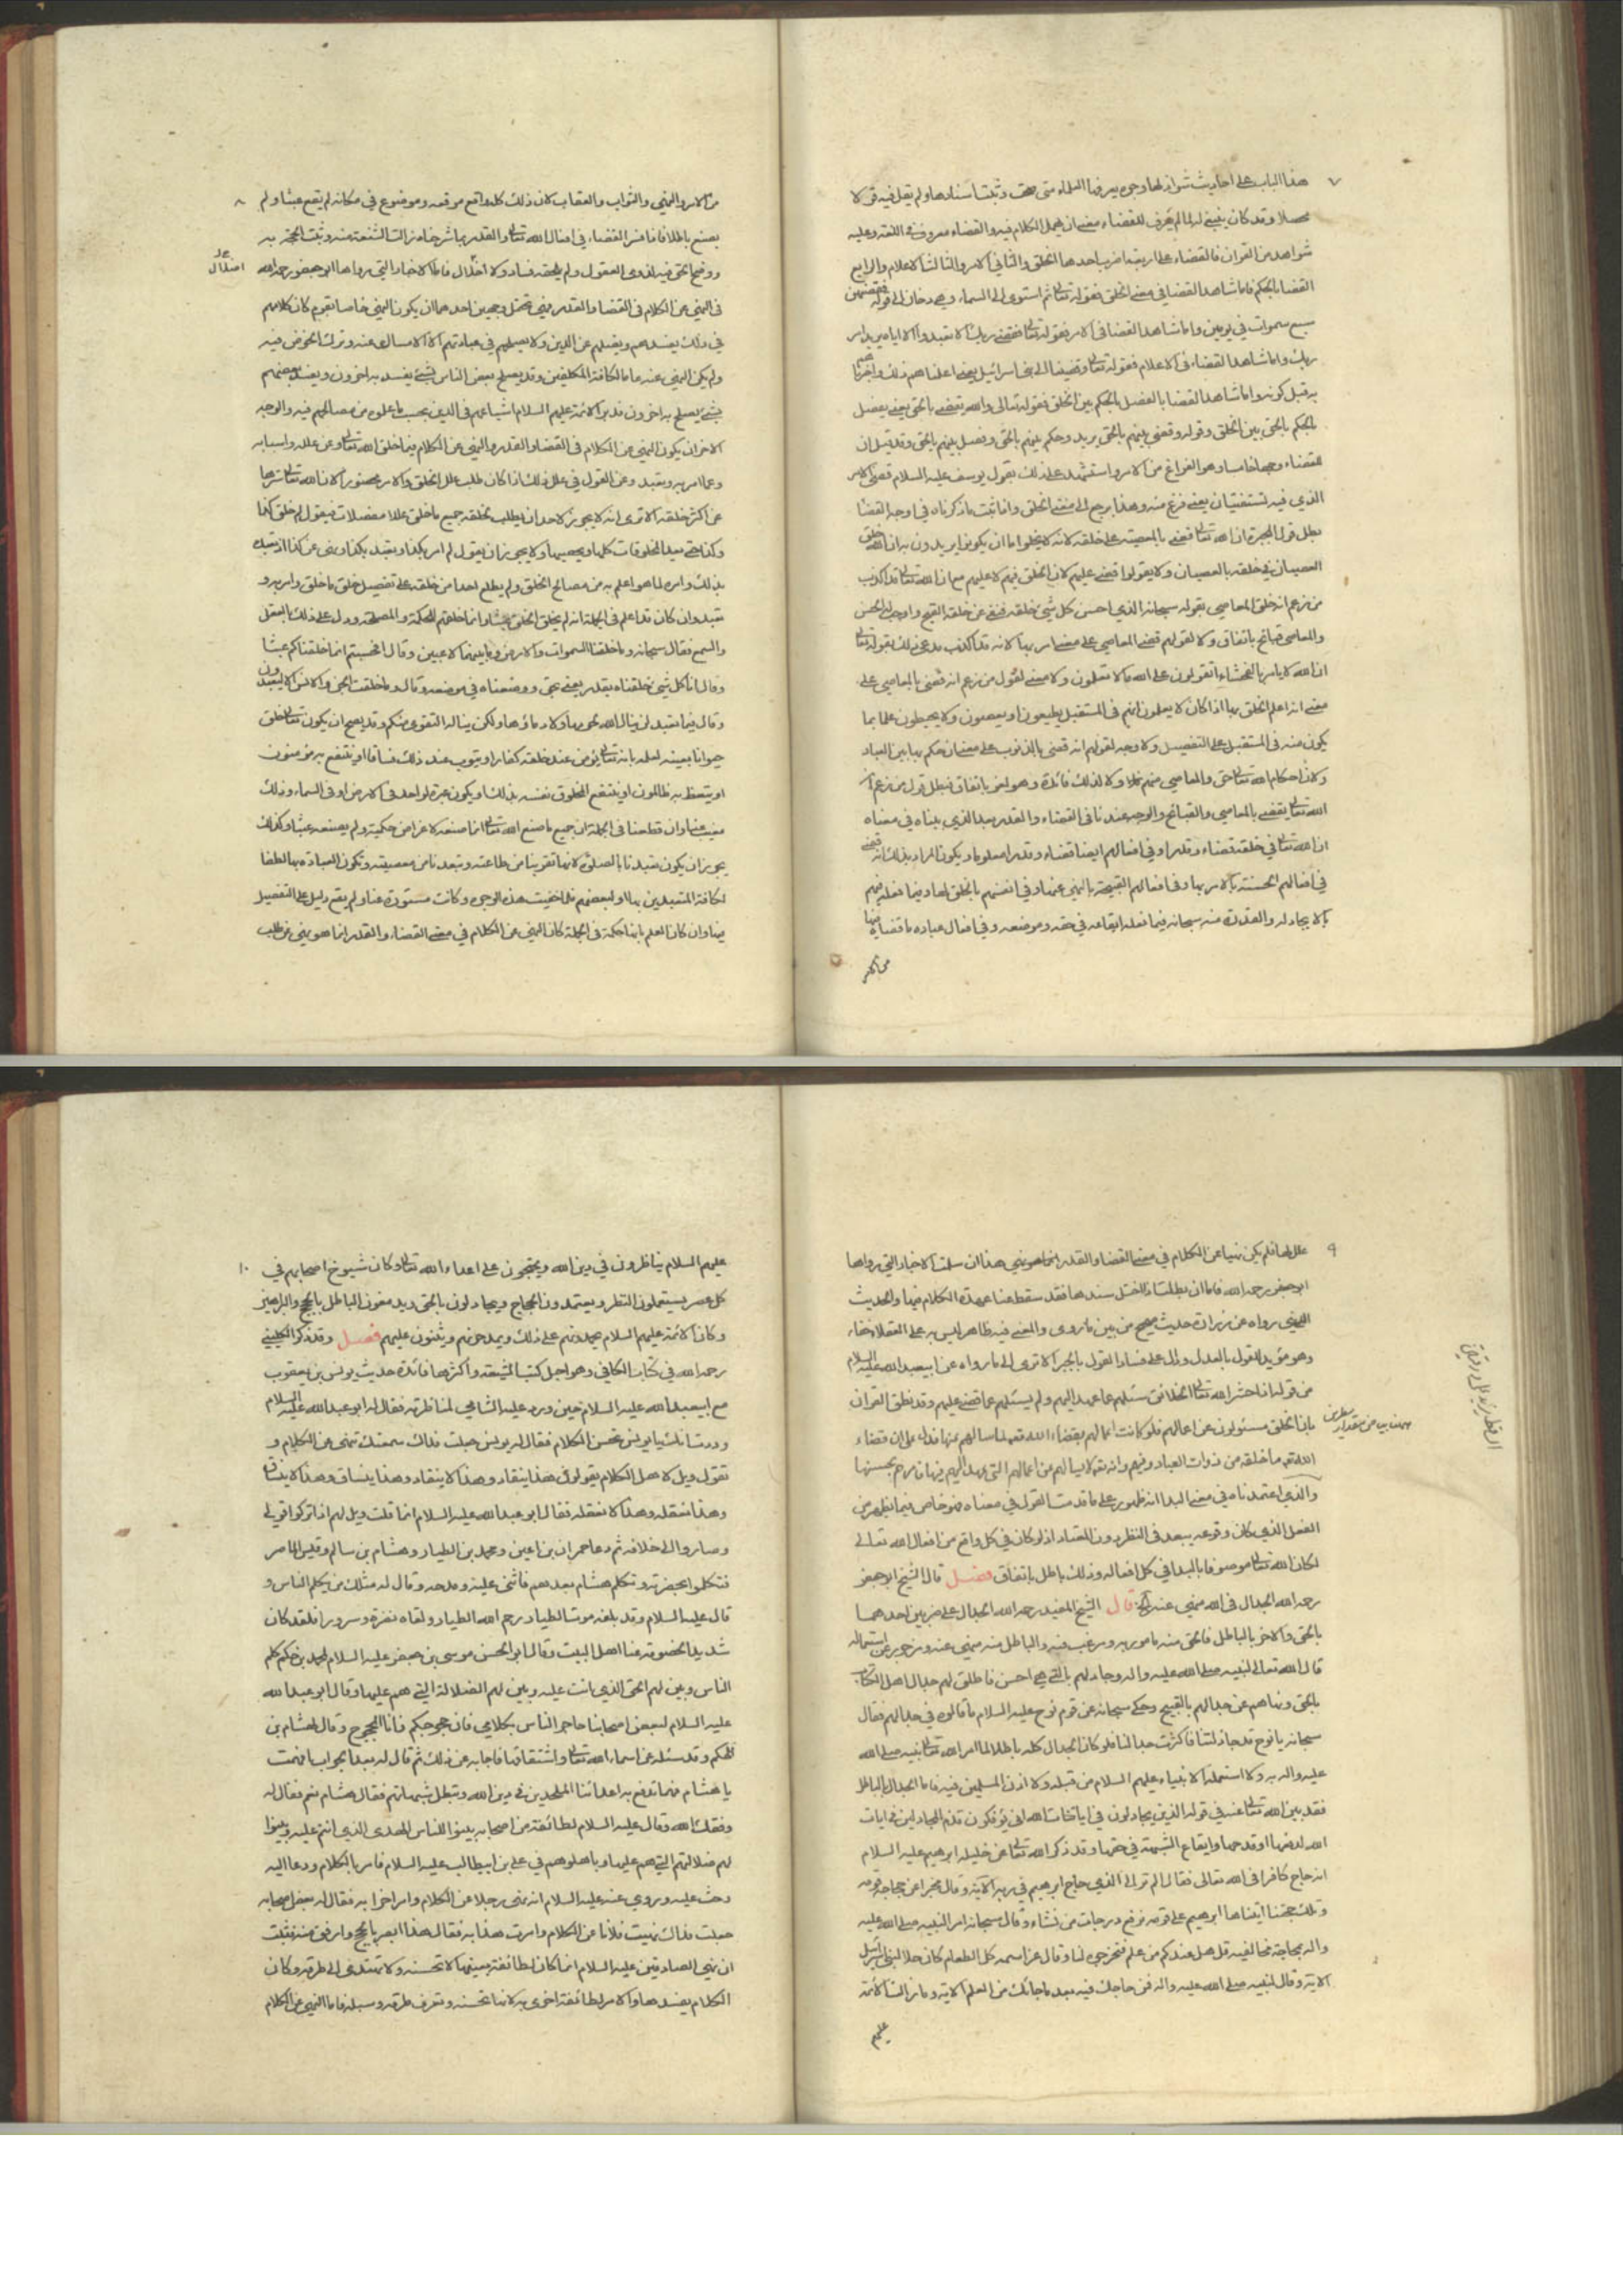 ٧
هذا الباب على احاديث شواذ لها وجوه يعرفها العلماء متى صحت وثبتت اسنادها ولم يقل فيه قولا
محصلا وقد كان ينبغى له لما لم يعرف للقضاء معنى ان يهمل الكلام فيه والقضاء معروف فى اللغة وعليه
شواهد من القران فالقضاء على اربعة اضرب احدها الخلق والثانى الامر والثالث الاعلام والرابع
القضا بالحكم فاما شاهد القضا فى معنى الخلق فقوله تعالى ثم استوى الى السماء وهى دخان الى قوله فقضيهن
سبع سموات فى يومين واما شاهد القضا فى الامر فقوله تعالى وقضى ربك الا تعبدوا الا اياه يريد امر
ربك واما شاهد القضاء فى الاعلام فقوله تعالى وقضينا الى بنى اسرائيل يعنى اعلمناهم ذلك واخبرناهم
به قبل كونه واما شاهد القضا بالفصل بالحكم بين الخلق فقوله تعالى والله يقضى بالحق يعنى يفصل
بالحكم بالحق بين الخلق وقوله وقضى بينهم بالحق يريد وحكم بينهم بالحق وفصل بينهم بالحق وقد قيل ان
للقضاء وجها خامسا وهو الفراغ من الامر واستشهد على ذلك بقول يوسف عليه السلام قضى الامر
الذى فيه تستفتيان يعنى فرغ منه وهذا يرجع الى معنى الخلق واذا ثبت ما ذكرناه فى اوجه القضا
بطل قول المجبرة ان الله تعالى قضى بالمعصية على خلقه لانه لا يخلوا اما ان يكونوا يريدون به ان الله خلق
العصيان فى خلقه بالعصيان ولا يقولوا قضى عليهم لان الخلق فيهم لا عليهم مع ان الله تعالى قد اكذب
من زعم انه خلق المعاصى بقوله سبحانه الذى احسن كل شئ خلقه فنفى عن خلقه القبح واوجب له الحسن
والمعاصى قبائح باتفاق ولا لقولهم قضى المعاصى على معنى امر بها لانه قد اكذب مدعى ذلك بقوله تعالى
ان الله لا يامر بالفحشاء اتقولون على الله ما لا تعلمون ولا معنى لقول من زعم انه قضى بالمعاصى على
معنى انه اعلم الخلق بها اذا كان لا يعلمون انهم فى المستقبل يطيعون او يعصون ولا يحيطون علما بما
يكون منه فى المستقبل على التفصيل ولا وجه لقولهم انه قضى بالذنوب على معنى انه حكم بها بين العباد
ولان احكام الله تعالى حق والمعاصى منهم ولا لذلك فائدة وهو لغو باتفاق فبطل قول من زعم ان
الله تعالى يقضى بالمعاصى والقبائح والوجه عندنا فى القضاء والقدر بعد الذى بيناه فى معناه
ان لله تعالى فى خلقه قضاء وقدرا وفى افعالهم ايضا قضاء وقدرا معلوما ويكون المراد بذلك انه قضى
فى افعالهم الحسنة بالامر بها وفى افعالهم القبيحة بالنهى عنها وفى انفسهم بالخلق لها وفيما فعله فيهم
بالايجاد له والقدر منه سبحانه فيما فعله ايقاعه فى حقه وموضعه وفى افعال عباده ما قضاه فيها
من الامر
٨
من الامر والنهى والثواب والعقاب لان ذلك كله واقع موقعه وموضوع فى مكانه لم يقع عبثا ولم
يصنع باطلا فاذا فسر القضاء فى افعال الله تعالى والقدر بما شرحناه زالت الشنعة منه وثبتت الحجة به
ووضح الحق فيه لذوى العقول ولم يلحقه فساد ولا اخلال فاما الاخبار التى رواها ابو جعفر رحمه الله
فى النهى عن الكلام فى القضا والقدر فهى تحتمل وجهين احدهما ان يكون النهى خاصا بقوم كان كلامهم
فى ذلك يفسدهم ويضلهم عن الدين ولا يصلحهم فى عبادتهم الا الامساك عنه وترك الخوض فيه
ولم يكن النهى عنه عاما لكافة المكلفين وقد يصلح بعض الناس بشئ يفسد به اخرون ويفسد بعضهم
بشئ يصلح به اخرون فدبر الائمة عليهم السلام اشياعهم فى الدين بحسب ما علموه من مصالحهم فيه والوجه
الاخر ان يكون النهى عن الكلام فى القضا والقدر والنهى عن الكلام فيما خلق الله تعالى وعن علله واسبابه
وعما امر به وتعبد وعن القول فى علل ذلك اذا كان طلب علل الخلق والامر محضورا لان الله تعالى سترها
عن اكثر خلقه الا ترى انه لا يجوز لاحد ان يطلب لخلقه جميع ما خلق عللا مفصلات فيقول لم خلق كذا
وكذا حتى يعد المخلوقات كلها ويحصيها ولا يجوز ان يقول لم امر بكذا وتعبد بكذا ونهى عن كذا اذ تعبده
بذلك وامره لما هو اعلم به من مصالح الخلق ولم يطلع احدا من خلقه على تفصيل خلق ما خلق وامر به و
تعبد وان كان قد اعلم فى الجملة انه لم يخلق الخلق عبثا وانما خلقهم للحكمة والمصلحة ودل على ذلك بالعقل
والسمع فقال سبحانه وما خلقنا السموات والارض وما بينهما لاعبين وقال افحسبتم انما خلقناكم عبثا
وقال انا كل شئ خلقناه بقدر يعنى بحق ووضعناه فى موضعه وقال وما خلقت الجن والانس الا ليعبدون
وقال فيما تعبد لن ينال الله لحومها ولا دماؤها ولكن يناله التقوى منكم وقد يصح ان يكون تعالى خلق
حيوانا بعينه لعلمه بانه تعالى يؤمن عند خلقه كفار او يتوب عند ذلك فساق او ينتفع به مؤمنون
او يتعظ به ظالمون او ينتفع المخلوق نفسه بذلك او يكون عبرة لواحد فى الارض او فى السماء وذلك
مغيب عنا وان قطعنا فى الجملة ان جميع ما صنع الله تعالى انما صنعه لاعراض حكمية ولم يصنعه عبثا وكذلك
يجوز ان يكون تعبدنا بالصلوة لانها تقربنا من طاعته وتبعدنا من معصيته وتكون العبادة بها لطفا
لكافة المتعبدين بها او لبعضهم فلما خفيت هذه الوجوه وكانت مستورة عنا ولم يقع دليل على التفصيل
فيها وان كان العلم بانها حكمة فى الجملة كان النهى عن الكلام فى معنى القضاء والقدر انما هو نهى عن طلب
٩
علل لها فلم يكن نهيا عن الكلام فى معنى القضا والقدر انما هو نهى هذا ان سلمت الاخبار التى رواها
ابو جعفر رحمه الله فاما ان بطلت او اختل سندها فقد سقط عنا عهدة الكلام فيها والحديث
الذى رواه عن زرارة حديث صحيح من بين ما روى والمعنى فيه ظاهر ليس به على العقلا خفاء
وهو مؤيد للقول بالعدل ودال على فساد القول بالجبر الا ترى الى ما رواه عن ابيعبدالله عليه السلام
من قوله اذا حشر الله تعالى الخلائق سئلهم عما عهد اليهم ولم يسئلهم عما قضى عليهم وقد نطق القران
بان الخلق مسئولون عن اعمالهم فلو كانت اعمالهم بقضاء الله تعه لما سالهم عنها فدل على ان قضاء
الله تعه ما خلقه من ذوات العباد وفيهم وانه تعه لا يسالهم عن اعمالهم التى عهد اليهم فيها فامرهم بحسنها
والذى اعتمدناه فى معنى البدا انه ظهور على ما قدمت القول فى معناه فهو خاص فيما يظهر من
الفعل الذى كان وقوعه يبعد فى النظر دون المعتاد اذ لو كان فى كل واقع من افعال الله تعالى
لكان الله تعالى موصوفا بالبدا فى كل افعاله وذلك باطل باتفاق فصل قال الشيخ ابو جعفر
رحمه الله الجدال فى الله منهى عنه الخ قال الشيخ المفيد رحمه الله الجدال على ضربين احدهما
بالحق والاخر بالباطل فالحق منه مامور به ومرغب فيه والباطل منه منهى عنه ومزجور عن استعماله
قال الله تعالى لنبيه صلى الله عليه واله وجادلهم بالتى هى احسن فاطلق لهم جدال اهل الكتاب
بالحق ونهاهم عن جدالهم بالقبيح وحكى سبحانه عن قوم نوح عليه السلام ما قالوه فى جدالهم فقال
سبحانه يا نوح قد جادلتنا فاكثرت جدالنا فلو كان الجدال كله باطلا لما امر الله تعالى نبيه صلى الله
عليه واله به ولا استعمله الانبياء عليهم السلام من قبله ولا اذن المسلمين فيه فاما الجدال بالباطل
فقد بين الله تعالى عنه فى قوله الذين يجادلون فى ايات الله انى يؤفكون فذم المجادلين فى ايات
الله لدفعها او قدحها وايقاع الشبهة فى حقها وقد ذكر الله تعالى عن خليله ابرهيم عليه السلام
انه حاج كافرا فى الله تعالى فقال الم تر الى الذى حاج ابرهيم فى ربه الاية وقال مخبرا عن حجاجه قومه
وتلك حجتنا اتيناها ابرهيم على قومه نرفع درجات من نشاء وقال سبحانه امرا لنبيه صلى الله عليه
واله بمحاجة مخالفيه قل هل عندكم من علم فتخرجوه لنا وقال عز اسمه كل الطعام كان حلا لبنى اسرائيل
الاية وقال لنبيه صلى الله عليه واله فمن حاجك فيه بعد ما جائك من العلم الاية وما زالت الائمة
عليهم
١٠
عليهم السلام يناظرون فى دين الله ويحتجون على اعداء الله تعالى وكان شيوخ اصحابهم فى
كل عصر يستعملون النظر ويعتمدون الحجاج ويجادلون بالحق ويدمغون الباطل بالحجج والبراهين
وكان الائمة عليهم السلام يحمدونهم على ذلك ويمدحونهم ويثنون عليهم فصل وقد ذكر الكلينى
رحمه الله فى كتاب الكافى وهو اجل كتب الشيعة واكثرها فائدة حديث يونس بن يعقوب
مع ابيعبد الله عليه السلام حين ورد عليه الشامى لمناظرته فقال له ابو عبد الله عليه السلام
وددت انك يا يونس تحسن الكلام فقال له يونس جعلت فداك سمعتك تنهى عن الكلام و
تقول ويل لاهل الكلام يقولون هذا ينقاد وهذا لا ينقاد وهذا ينساق وهذا لا ينساق
وهذا نعقله وهذا لا نعقله فقال ابو عبد الله عليه السلام انما قلت ويل لهم اذا تركوا قولى
وصاروا الى خلافه ثم دعا حمران بن اعين ومحمد بن الطيار وهشام بن سالم وقيس الماصر
فتكلموا بحضرته وتكلم هشام بعدهم فاثنى عليه ومدحه وقال له مثلك من يكلم الناس و
قال عليه السلام وقد بلغه موت الطيار رحم الله الطيار ولقاه نضرة وسرورا فلقد كان
شديد الخصومة عنا اهل البيت وقال ابو الحسن موسى بن جعفر عليه السلام لمحمد بن حكيم كلم
الناس وبين لهم الحق الذى انت عليه وبين لهم الضلالة التى هم عليها وقال ابو عبد الله
عليه السلام لبعض اصحابنا حاجوا الناس بكلامى فان حجوكم فانا المحجوج وقال لهشام بن
الحكم وقد سئله عن اسماء الله تعالى واشتقاقها فاجابه عن ذلك ثم قال له بعد الجواب افهمت
يا هشام فهما تدفع به اعدائنا الملحدين فى دين الله وتبطل شبهاتهم فقال هشام نعم فقال له
وفقك الله وقال عليه السلام لطائفة من اصحابه بينوا للناس الهدى الذى انتم عليه وبينوا
لهم ضلالتهم التى هم عليها وباهلوهم فى على بن ابيطالب عليه السلام فامر بالكلام ودعا اليه
وحث عليه وروى عنه عليه السلام انه نهى رجلا عن الكلام وامر اخر به فقال له بعض اصحابه
جعلت فداك نهيت فلانا عن الكلام وامرت هذا به فقال هذا ابصر بالحجج وارفق منه فثبت
ان نهى الصادقين عليه السلام انما كان لطائفة بعينها لا تحسنه ولا تهتدى الى طرقه وكان
الكلام يفسدها والامر لطائفة اخرى به لانها تحسنه وتعرف طرقه وسبله فاما النهى عن الكلام